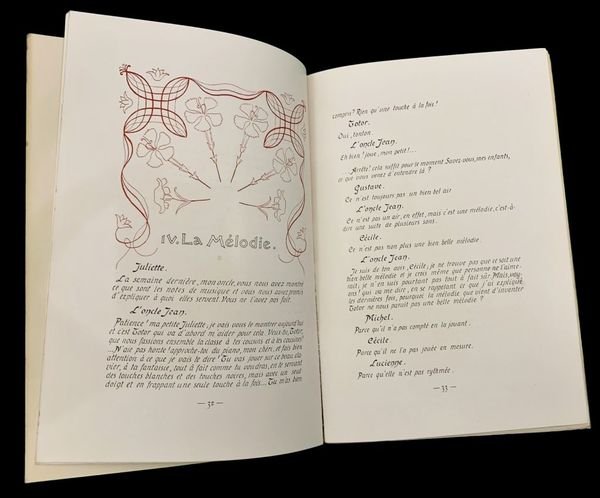 IV. La Mélodie.
Juliette.
La semaine dernière, mon oncle, vous nous avez montré
ce que sont les notes de musique et vous nous avez promis
d'expliquer à quoi elles servent. Vous ne l'avez pas fait.
L'oncle Jean.
Patience! ma petite Juliette, je vais vous le montrer aujourd'hui
et c'est Totor qui va d'abord m'aider pour cela. Veux-tu, Totor,
que nous fassions ensemble la classe à tes cousins et à tes cousines?
...N'aie pas honte! approche-toi du piano, mon chéri, et fais bien
attention à ce que je vais te dire! Tu vas jouer sur ce beau cla-
vier, à ta fantaisie, tout à fait comme tu voudras, en te servant
des touches blanches et des touches noires, mais avec un seul
doigt et en frappant une seule touche à la fois... Tu m'as bien
— 32 —
compris? Rien qu'une touche à la fois!
Totor.
Oui, tonton.
L'oncle Jean.
Eh bien! joue, mon petit!...
...Arrête! cela suffit pour le moment. Savez-vous, mes enfants,
ce que vous venez d'entendre là?
Gustave.
Ce n'est toujours pas un bien bel air.
L'oncle Jean.
Ce n'est pas un air, en effet, mais c'est une mélodie, c'est-à-
dire une suite de plusieurs sons.
Cécile.
Ce n'est pas non plus une bien belle mélodie.
L'oncle Jean.
Je suis de ton avis, Cécile, je ne trouve pas que ce soit une
bien belle mélodie et je crois même que personne ne l'aime-
rait, je n'en suis pourtant pas tout à fait sûr. Mais, voy-
ons! qui va me dire, en se rappelant ce que j'ai expliqué
les dernières fois, pourquoi la mélodie que vient d'inventer
Totor ne nous paraît pas une belle mélodie?
Michel.
Parce qu'il n'a pas compté en la jouant.
Cécile
Parce qu'il ne l'a pas jouée en mesure.
Lucienne.
Parce qu'elle n'est pas rythmée.
— 33 —